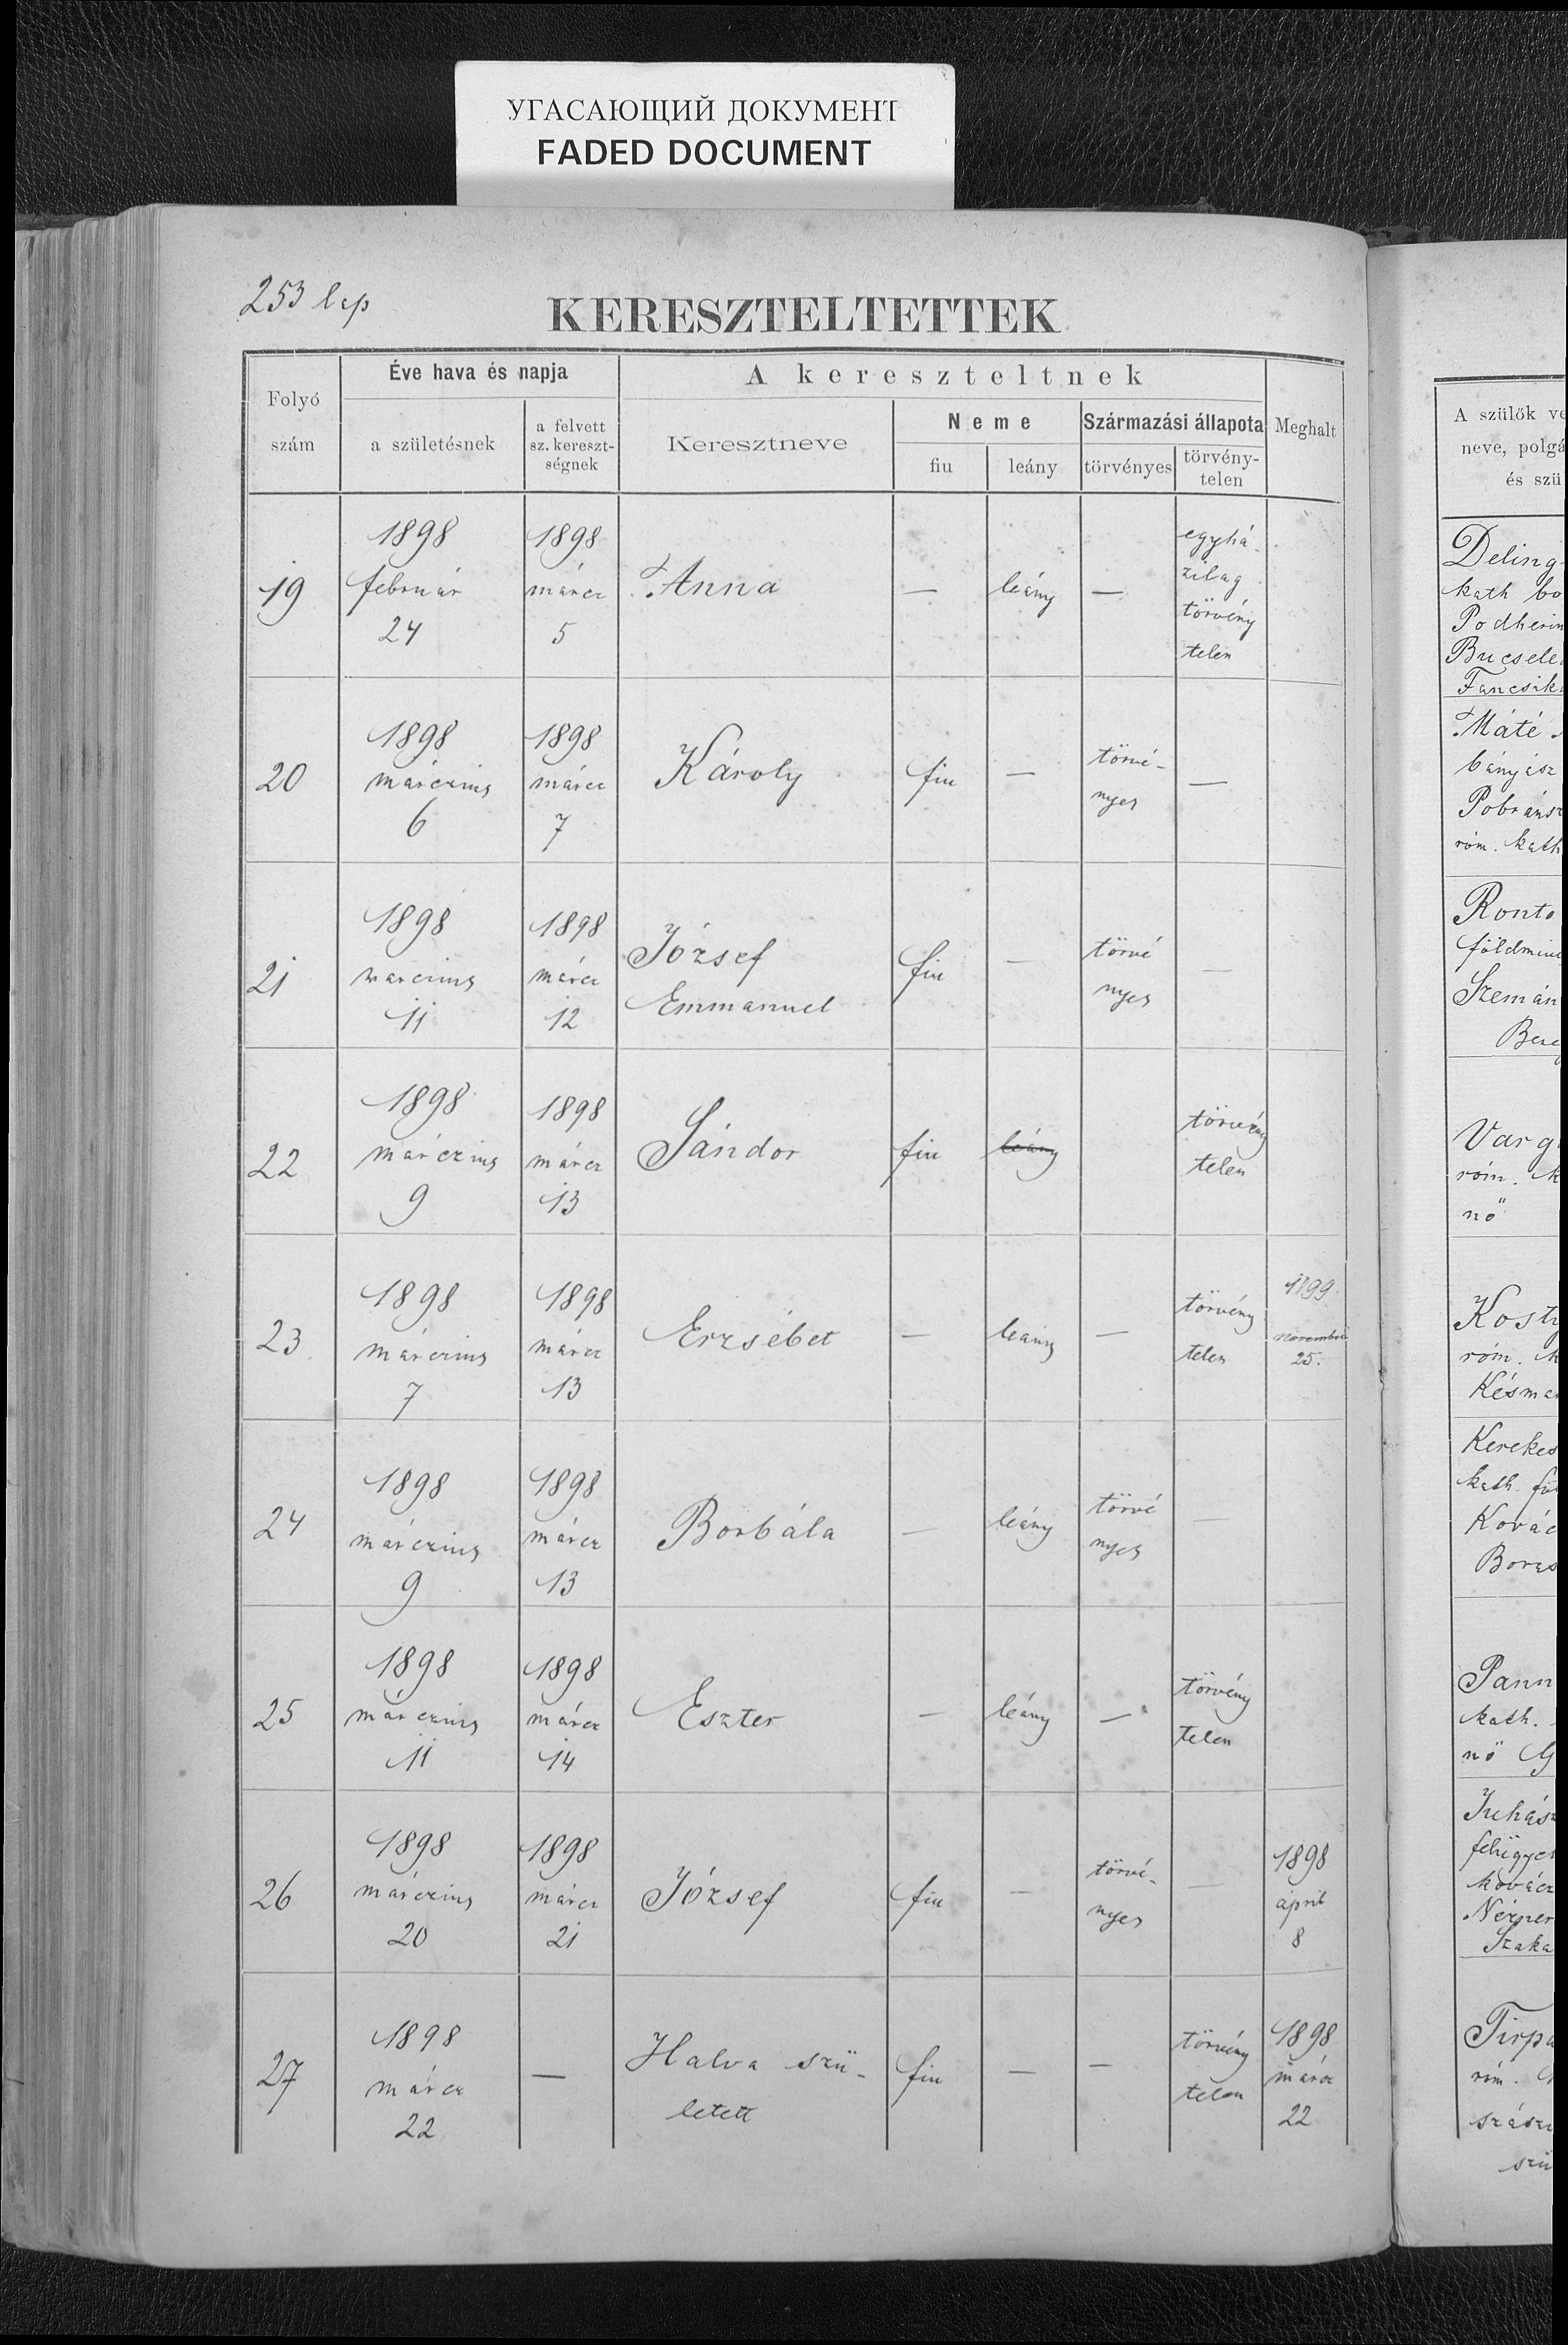 УГАСАЮЩИЙ ДОКУМЕНТ
FADED DOCUMENT
253 lap
KERESZTELTETTEK
Folyó
szám
Éve hava és napja
a születésnek
a felvett
sz. kereszt-
ségnek
A kereszteltnek
Keresztneve
Neme
fiu
leány
Származási állapota
törvényes
törvény-
telen
Meghalt
19
1898
február
24
1898
márcz
5
Anna
—
leány
—
egyhá-
zilag
törvény
telen
20
1898
márczius
6
1898
márcz
7
Károly
fiu
—
törvé-
nyes
—
21
1898
marczius
11
1898
márcz
12
József
Emmanuel
fiu
—
törvé
nyes
—
22
1898
márczius
9
1898
márcz
13
Sándor
fiu
leány
törvény
telen
23
1898
márczius
7
1898
márcz
13
Erzsébet
—
leány
—
törvény
telen
1899
november
25.
24
1898
márczius
9
1898
márcz
13
Borbála
—
leány
törvé
nyes
—
25
1898
márczius
11
1898
márcz
14
Eszter
—
leány
—
törvény
telen
26
1898
márczius
20
1898
márcz
21
József
fiu
—
törvé-
nyes
—
1898
april
8
27
1898
márcz
22
—
Halva szü-
letett
fiu
—
—
törvény
telen
1898
márcz
22
A szülők ve
neve, polgá
és szü
Deling
kath bo
Podherin
Bucsele
Fancsik
Máté
bányász
Pobránsz
róm. kath
Ronto
földmive
Szemán
Bere
Varg
róm. k
nő
Kosty
róm. k
Késma
Kerekes
kath. fö
Kovác
Boros
Pann
kath.
nő
Juhász
felügye
kovács
Szaka
Tirpa
róm.
szü